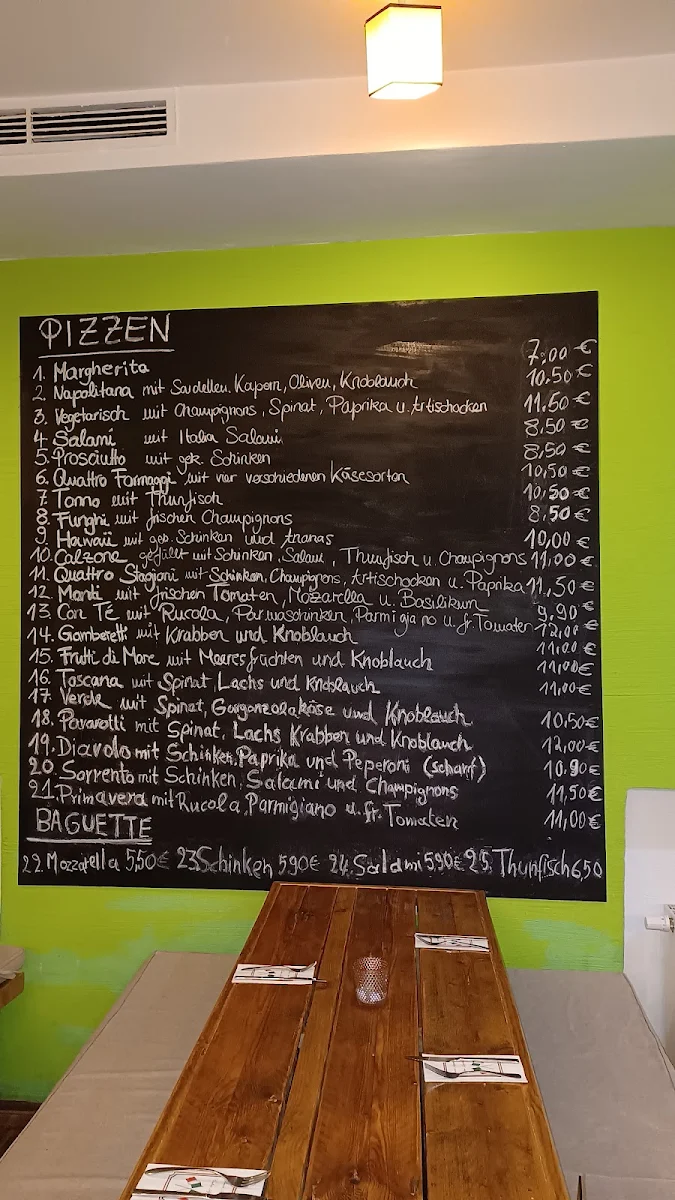 PIZZEN
1. Margherita 7:00 €
2. Napolitana mit Sardellen, Kapern, Oliven, Knoblauch 10.50 €
3. Vegetarisch mit Champignons, Spinat, Paprika u. Artischocken 11.50 €
4. Salami mit Italia Salami 8,50 €
5. Prosciutto mit gek. Schinken 8,50 €
6. Quattro Formaggi mit vier verschiedenen Käsesorten 10,50 €
7. Tonno mit Thunfisch 10,50 €
8. Funghi mit frischen Champignons 8,50 €
9. Hawaii mit gek. Schinken und Ananas 10,00 €
10. Calzone gefüllt mit Schinken, Salami, Thunfisch u. Champignons 11,00 €
11. Quattro Stagioni mit Schinken, Champignons, Artischocken u. Paprika 11,50 €
12. Monti mit frischen Tomaten, Mozarella u. Basilikum 9.90 €
13. Con Te mit Rucola, Parmaschinken, Parmigiano u. fr. Tomaten 12,00 €
14. Gamberetti mit Krabben und Knoblauch 11,00 €
15. Frutti di Mare mit Meeresfrüchten und Knoblauch 11,00 €
16. Toscana mit Spinat, Lachs und Knoblauch 11,00 €
17. Verde mit Spinat, Gorgonzolakäse und Knoblauch 10,50 €
18. Pavarotti mit Spinat, Lachs Krabben und Knoblauch 12,00 €
19. Diavolo mit Schinken, Paprika und Peperoni (scharf) 10.90 €
20. Sorrento mit Schinken, Salami und Champignons 11,50 €
21. Primavera mit Rucola, Parmigiano u. fr. Tomaten 11,00 €
BAGUETTE
22. Mozzarella 5,50 € 23 Schinken 5,90 € 24. Salami 5,90 € 25. Thunfisch 6,50